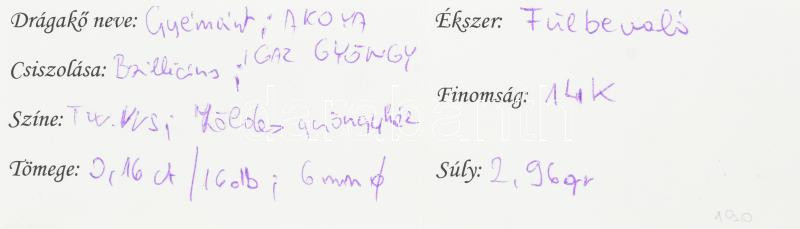 Drágakő neve: Gyémánt; AKOYA
Csiszolása: Brilliáns; IGAZ GYÖNGY
Színe: Tw. VVS; Zöldes gyöngyház
Tömege: 0,16 ct / 16db; 6mm ϕ
Ékszer: Fülbevaló
Finomság: 14K
Súly: 2,96gr
190